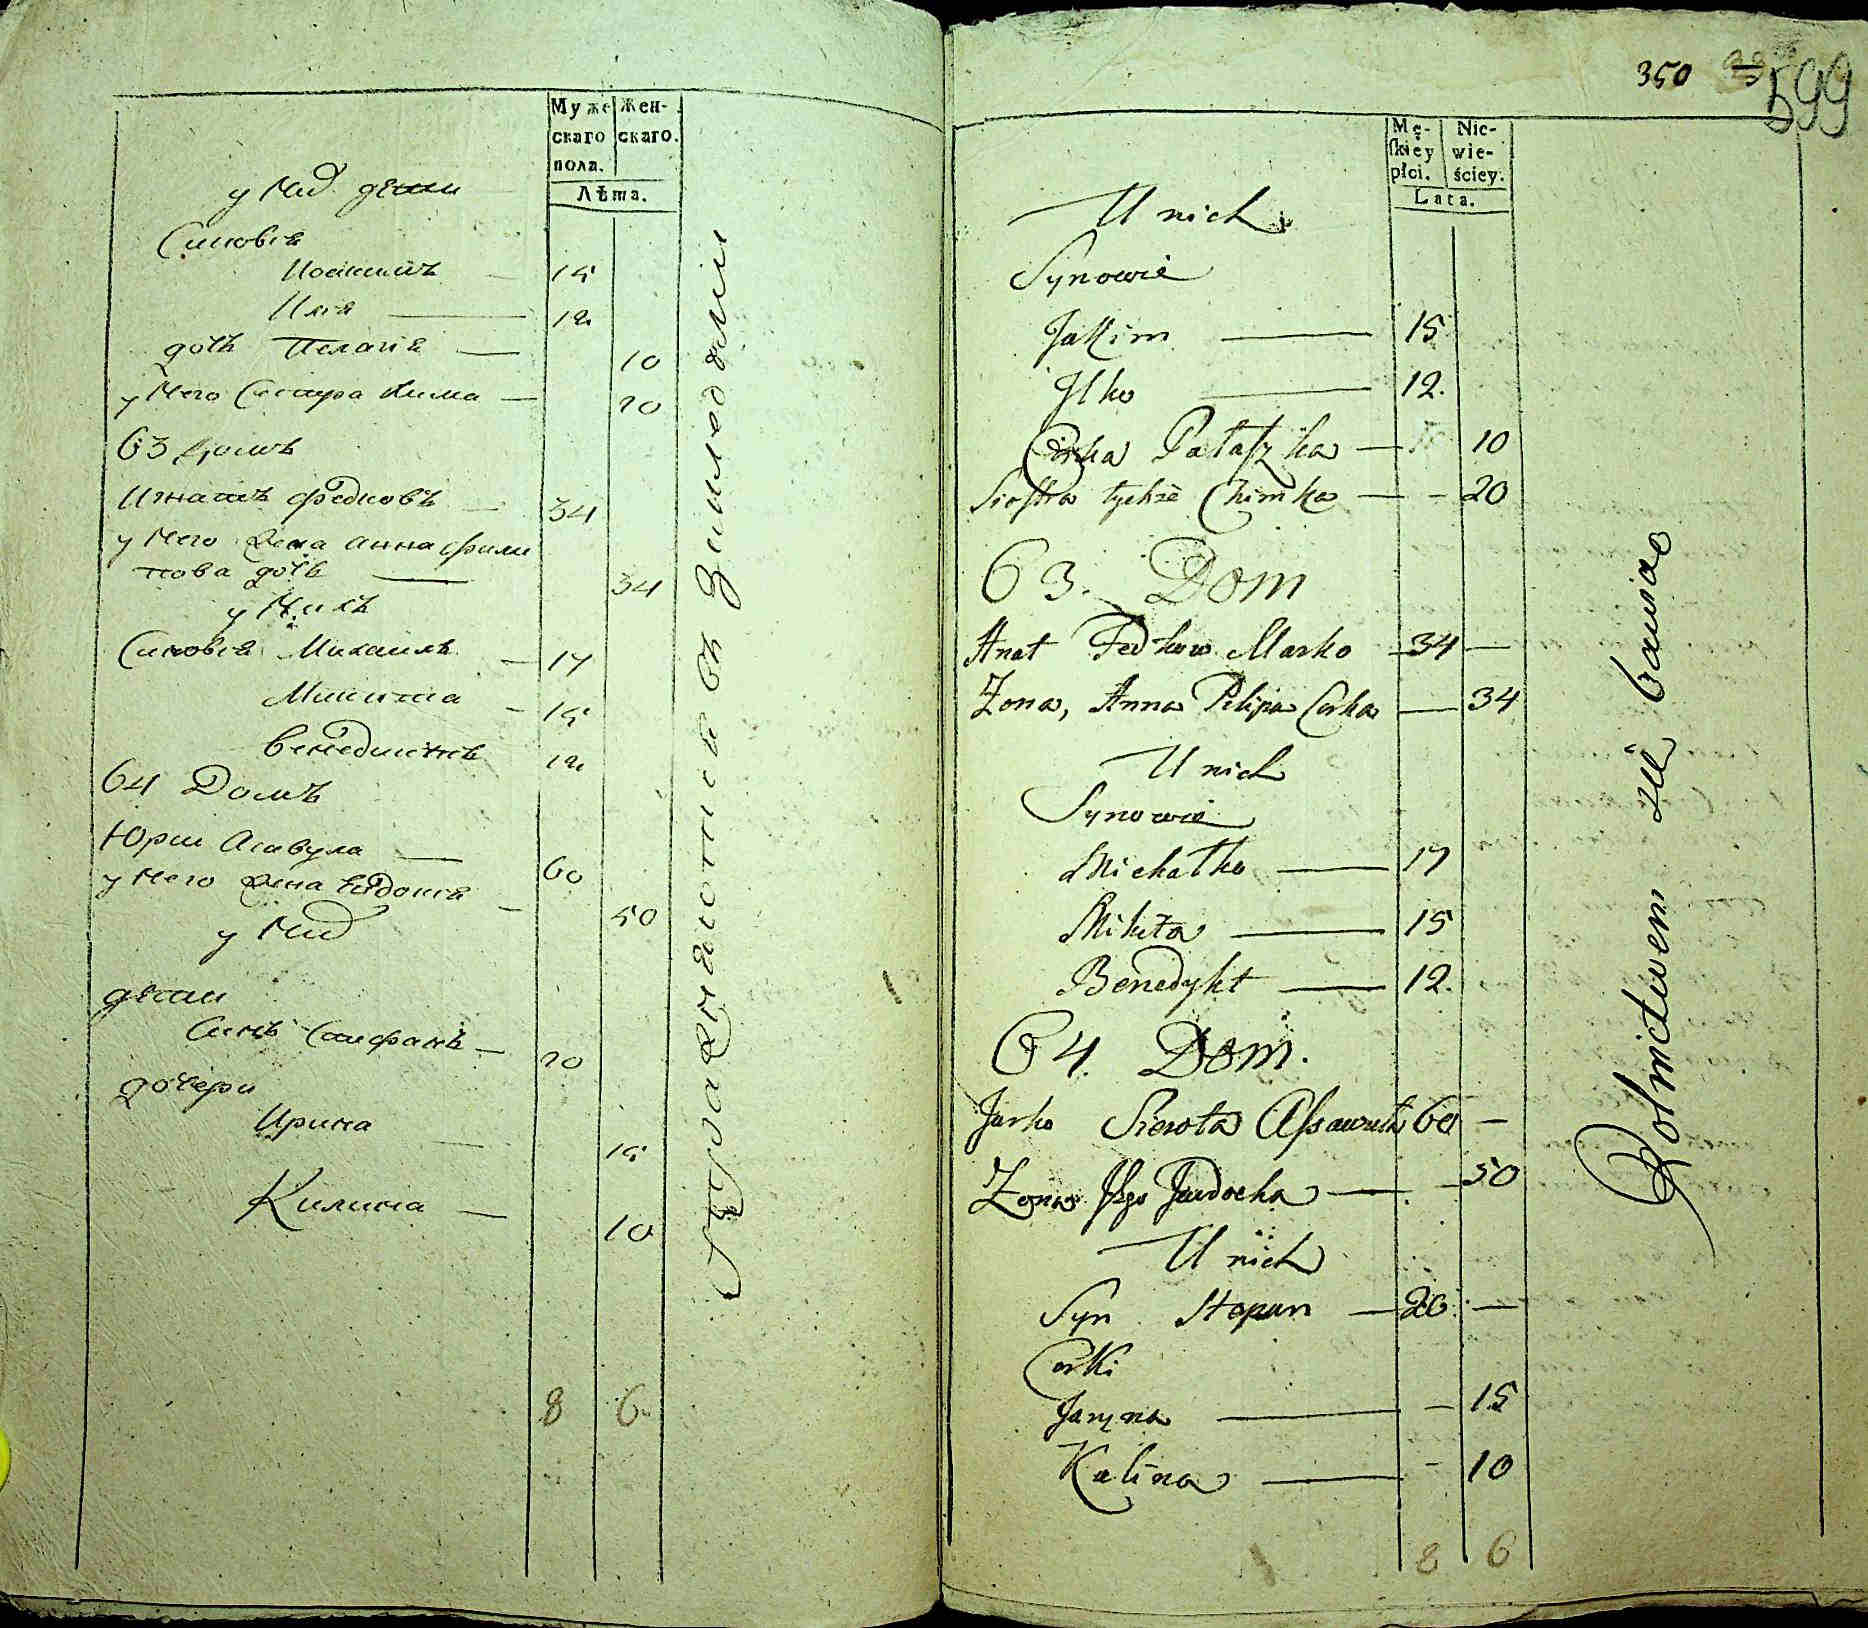 Муже
скаго
пола.
Жен-
скаго.
Лѣта.
у нид дети
Синовія
Иоакимъ — 15
Илія — 12
дочь Пелагія — 10
у него Систра Хима — 20
63 Домъ
Игнатъ Федковъ — 34
у него Жена Анна Фили
пова дочь — 34
у Нихъ
Синовія Михаилъ — 17
Микита — 15
Бенедиктъ 12
64 Домъ
Юрии Асавула — 60
у него Жена Евдокія — 50
у Нид
дети
Синъ Стефанъ — 20
дочери
Ирина — 15
Килина — 10
8 6
350
599
Mę-
skiey
płci.
Nie-
wie-
ściey.
Lata.
U nich
Synowie
Jakim — 15
Ilko — 12.
Corka Pałaszka — 10
Siostra tychże Chimka — - 20
63. Dom
Anat Fedkow Marko 34 —
Zona, Anna Pilipa Corka — 34
U nich
Synowie
Michałko — 17
Mikita — 15
Benedykt — 12.
64. Dom.
Jurko Sierota Assawuła 60 —
Zona Jego Jewdocha — - 50
U nich
Syn Stepan — 20 —
Corki
Jaryna — - 15
Kalina — - 10
8 6
Rolnictwem się bawiao